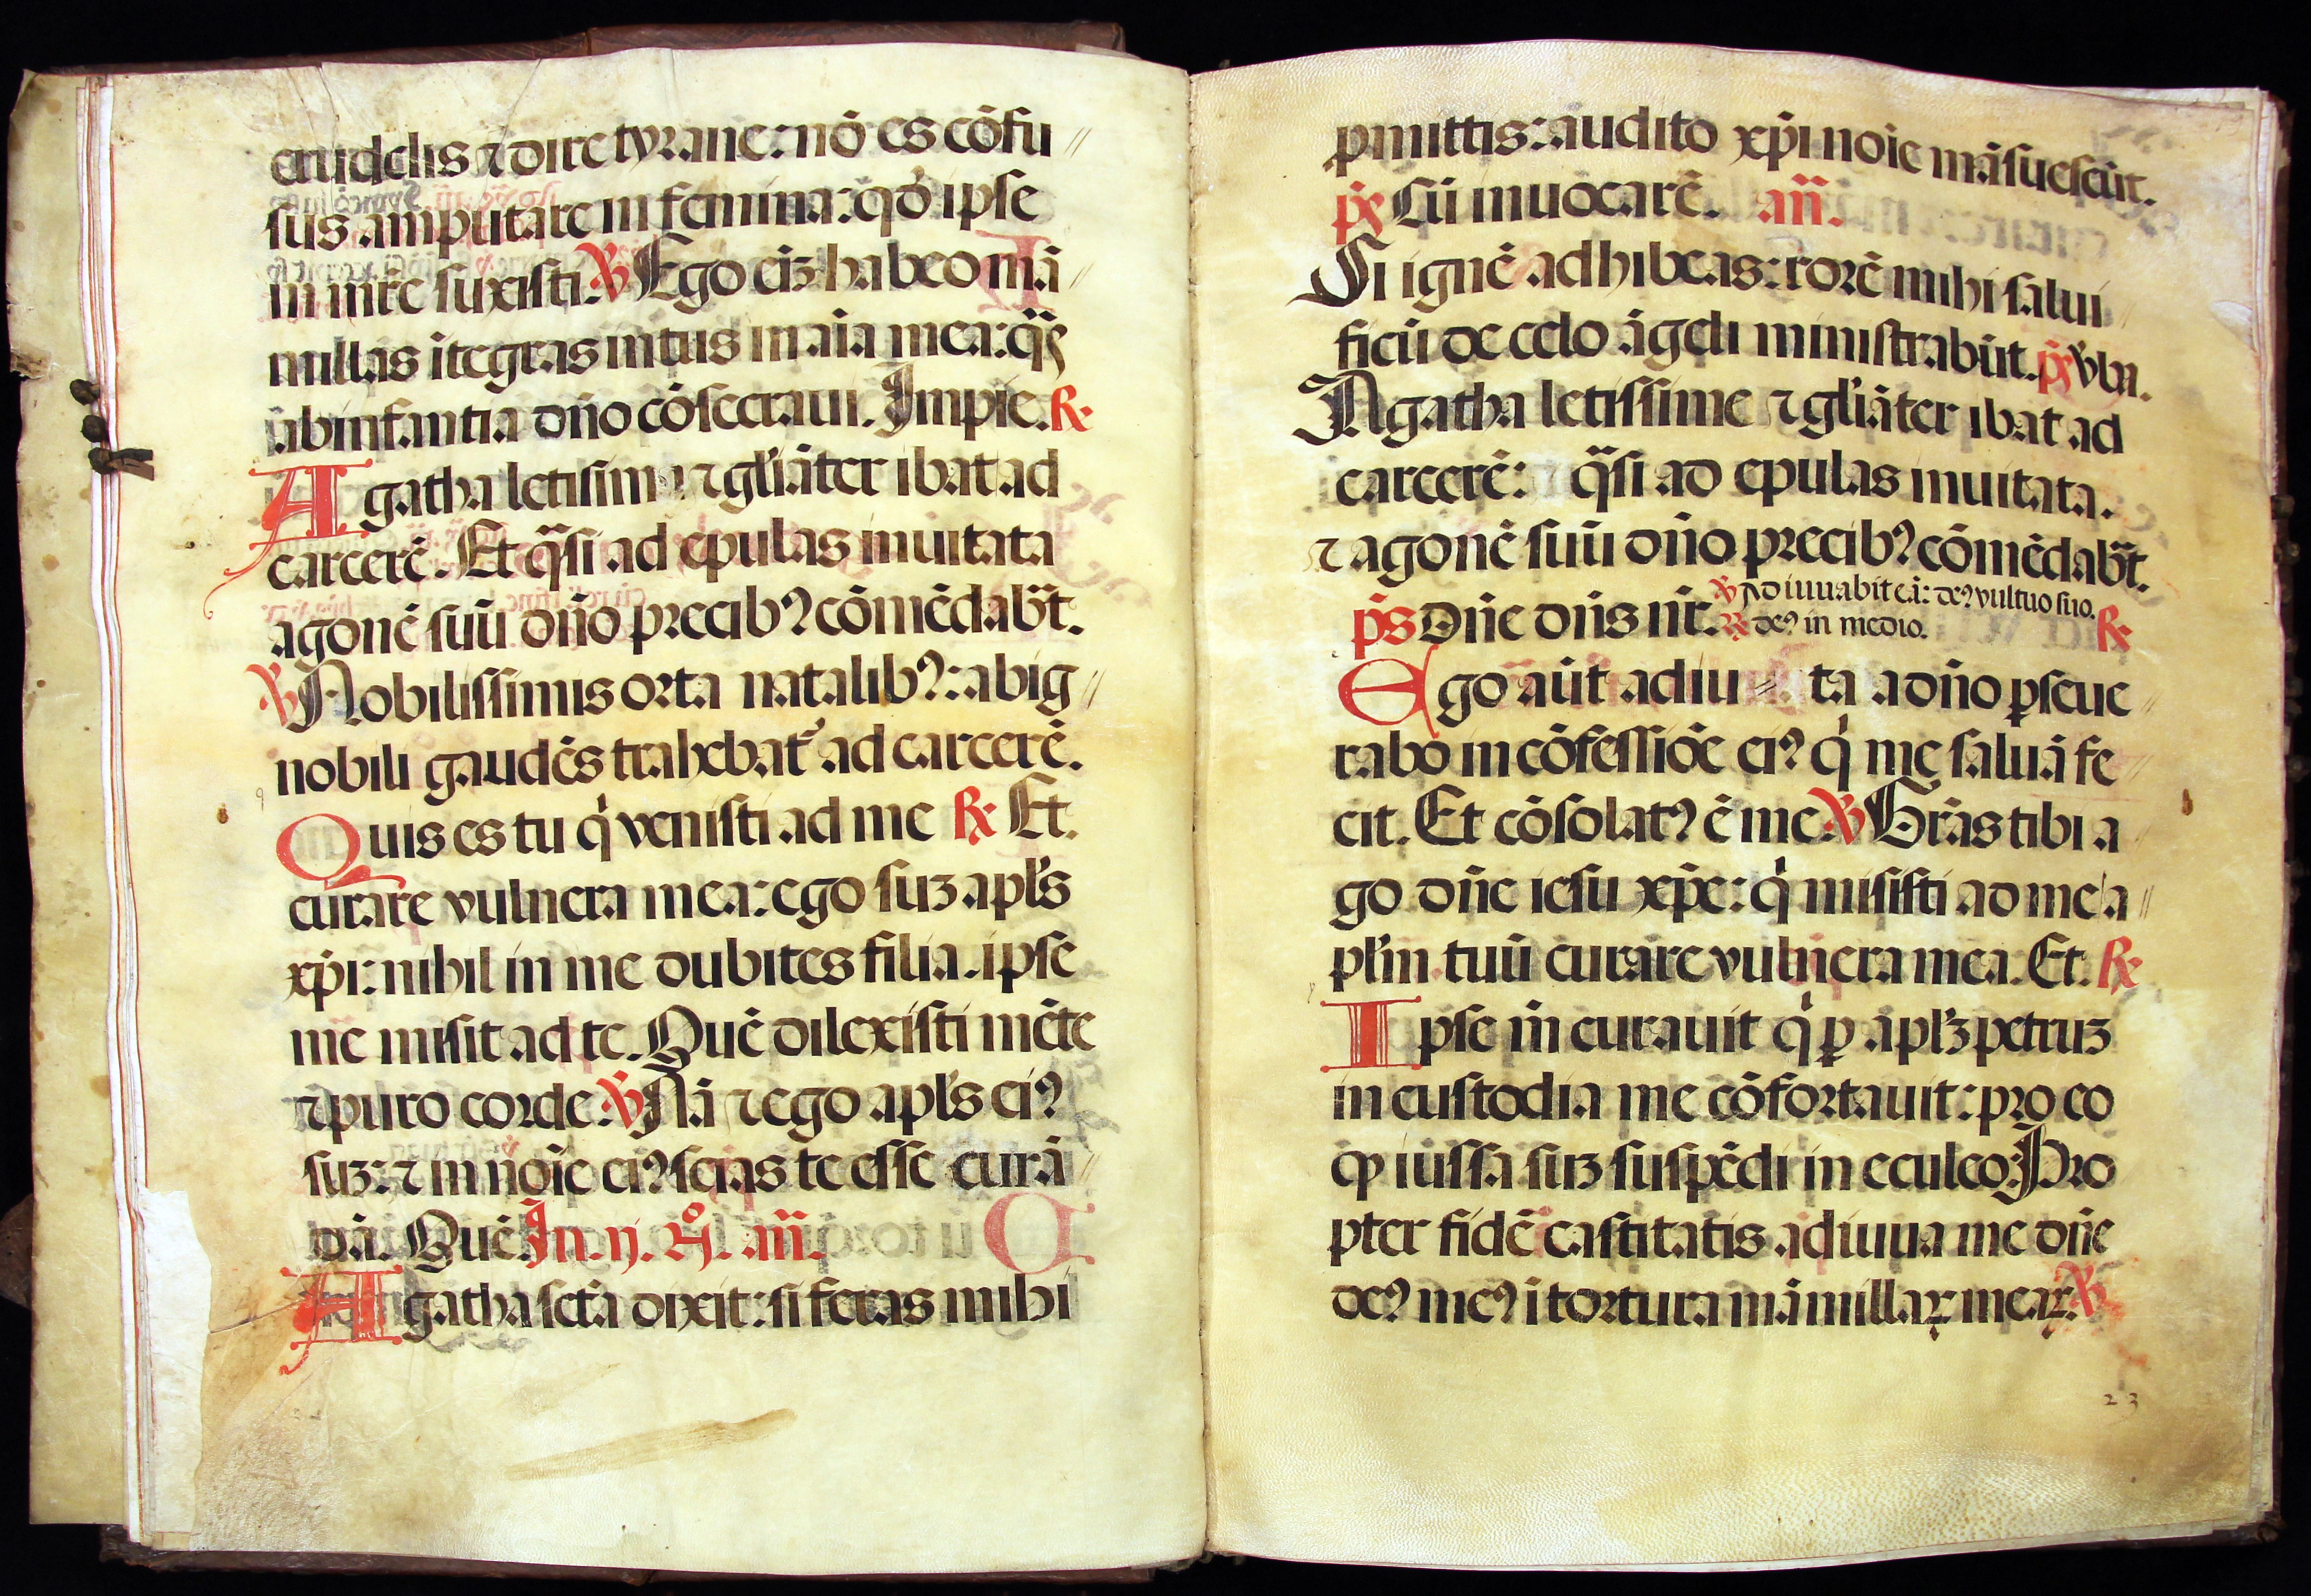 crudelis ⁊ dire tyrane: nō es cōfu//
sus amputare in femina: qd̓ ipse
in mr̄e suxisti. ℣ Ego eiꝫ habeo mā/
millas ītegras intus in aīa mea: q̄s
ab infantia dn̄o cōsecraui. Impie. ℟
Agatha letisima ⁊ gl̓iāter ibat ad
carcerē. Et q̄si ad epulas inuitata
agonē suū dn̄o precibꝰ cōmēdabāt.
℣ Nobilissimis orta natalibꝰ: ab ig//
nobili gaudēs trahebat᷑ ad carcerē.
Quis es tu q̓ venisti ad me ℟ Et.
curare vulnera mea: ego suꝫ apl̓s
xp̄i: nihil in me dubites filia. ipse
me misit ad te. Quē dilexisti mēte
⁊ puro corde. ℣ Nā ⁊ ego apl̓s eiꝰ
suꝫ: ⁊ in noīe eiꝰ scias te esse curā/
dā. Quē. In. ij. N̊. an̄.
Agatha sct̄a dixit: si feras mihi
ꝓmittis: audito xp̄i noīe māsuescūt.
p̄s Cū inuocarē. an̄.
Si ignē adhibeas: rorē mihi salui/
ficū de celo āgeli ministrabūt. p̄s v̄ba.
Agatha letissime ⁊ gl̓iāter ibat ad
carcerē: q̄si ad epulas inuitata.
⁊ agonē suū dn̄o precibꝰ cōmēdabāt.
p̄s Dn̄e dn̄s nr̄. ℣ Adiuuabit eā: deꝰ vultuo suo.
℟ deꝰ in medio. ℟
Ego aūt adiu// ta a dn̄o ꝑseue/
rabo in cōfessiōe eiꝰ q̓ me saluā fe/
cit. Et cōsolatꝰ ē me. ℣ Gr̄as tibi a/
go dn̄e iesu xp̄e: q̓ misisti ad me a//
pl̓m tuū curare vulnera mea. Et. ℟
Ipse m̄ curauit q̓ ꝑ apl̓ꝫ petruꝫ
in custodia me cōfortauit: pro eo
ꝙ iussa suꝫ suspēdi in eculeo: Pro
pter fidē castitatis adiuua me dn̄e
deꝰ meꝰ ī tortura māmillaꝝ meaꝝ. ℣
23